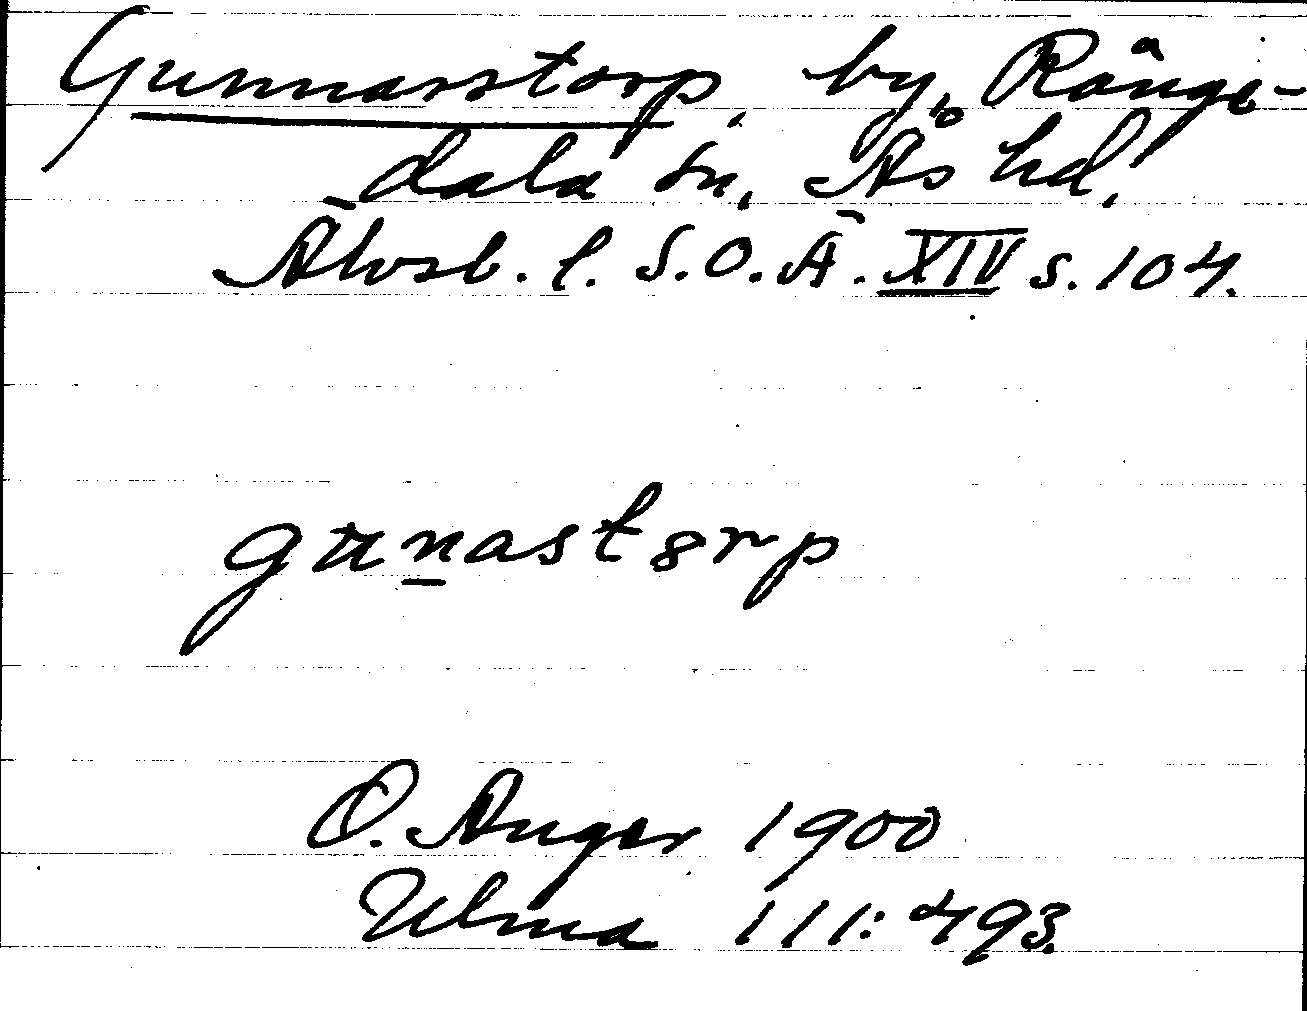 Gunnarstorp, by, Rånge-
dala sn, Ås hd,
Älvsb. l. S.O.Ä. XIV s. 104.
gunastorp
O. Anger 1900
Ulma 111:493.